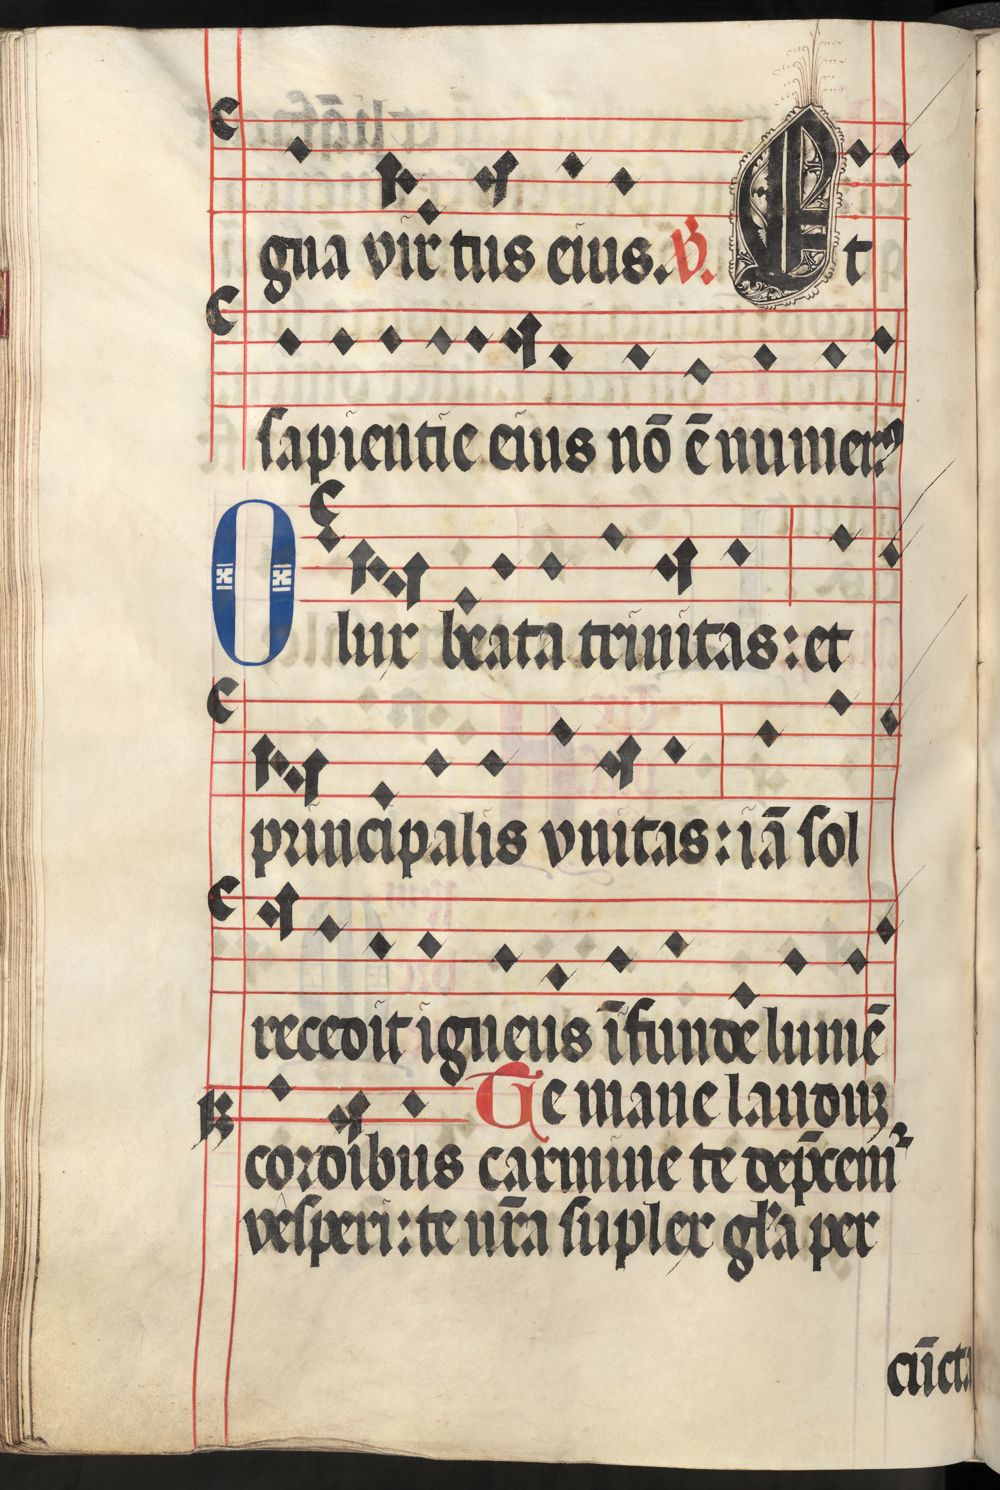 gna virtus eius. V. Et
sapientie eius nō ē numerꝰ
O lux beata trinitas: et
principalis vnitas: iā sol
recedit igneus īfunde lumē
Te mane laudūꝫ
cordibus carmine te dep̄cem᷑
vesperi: te nr̄a suplex gl̄a per
cūcta